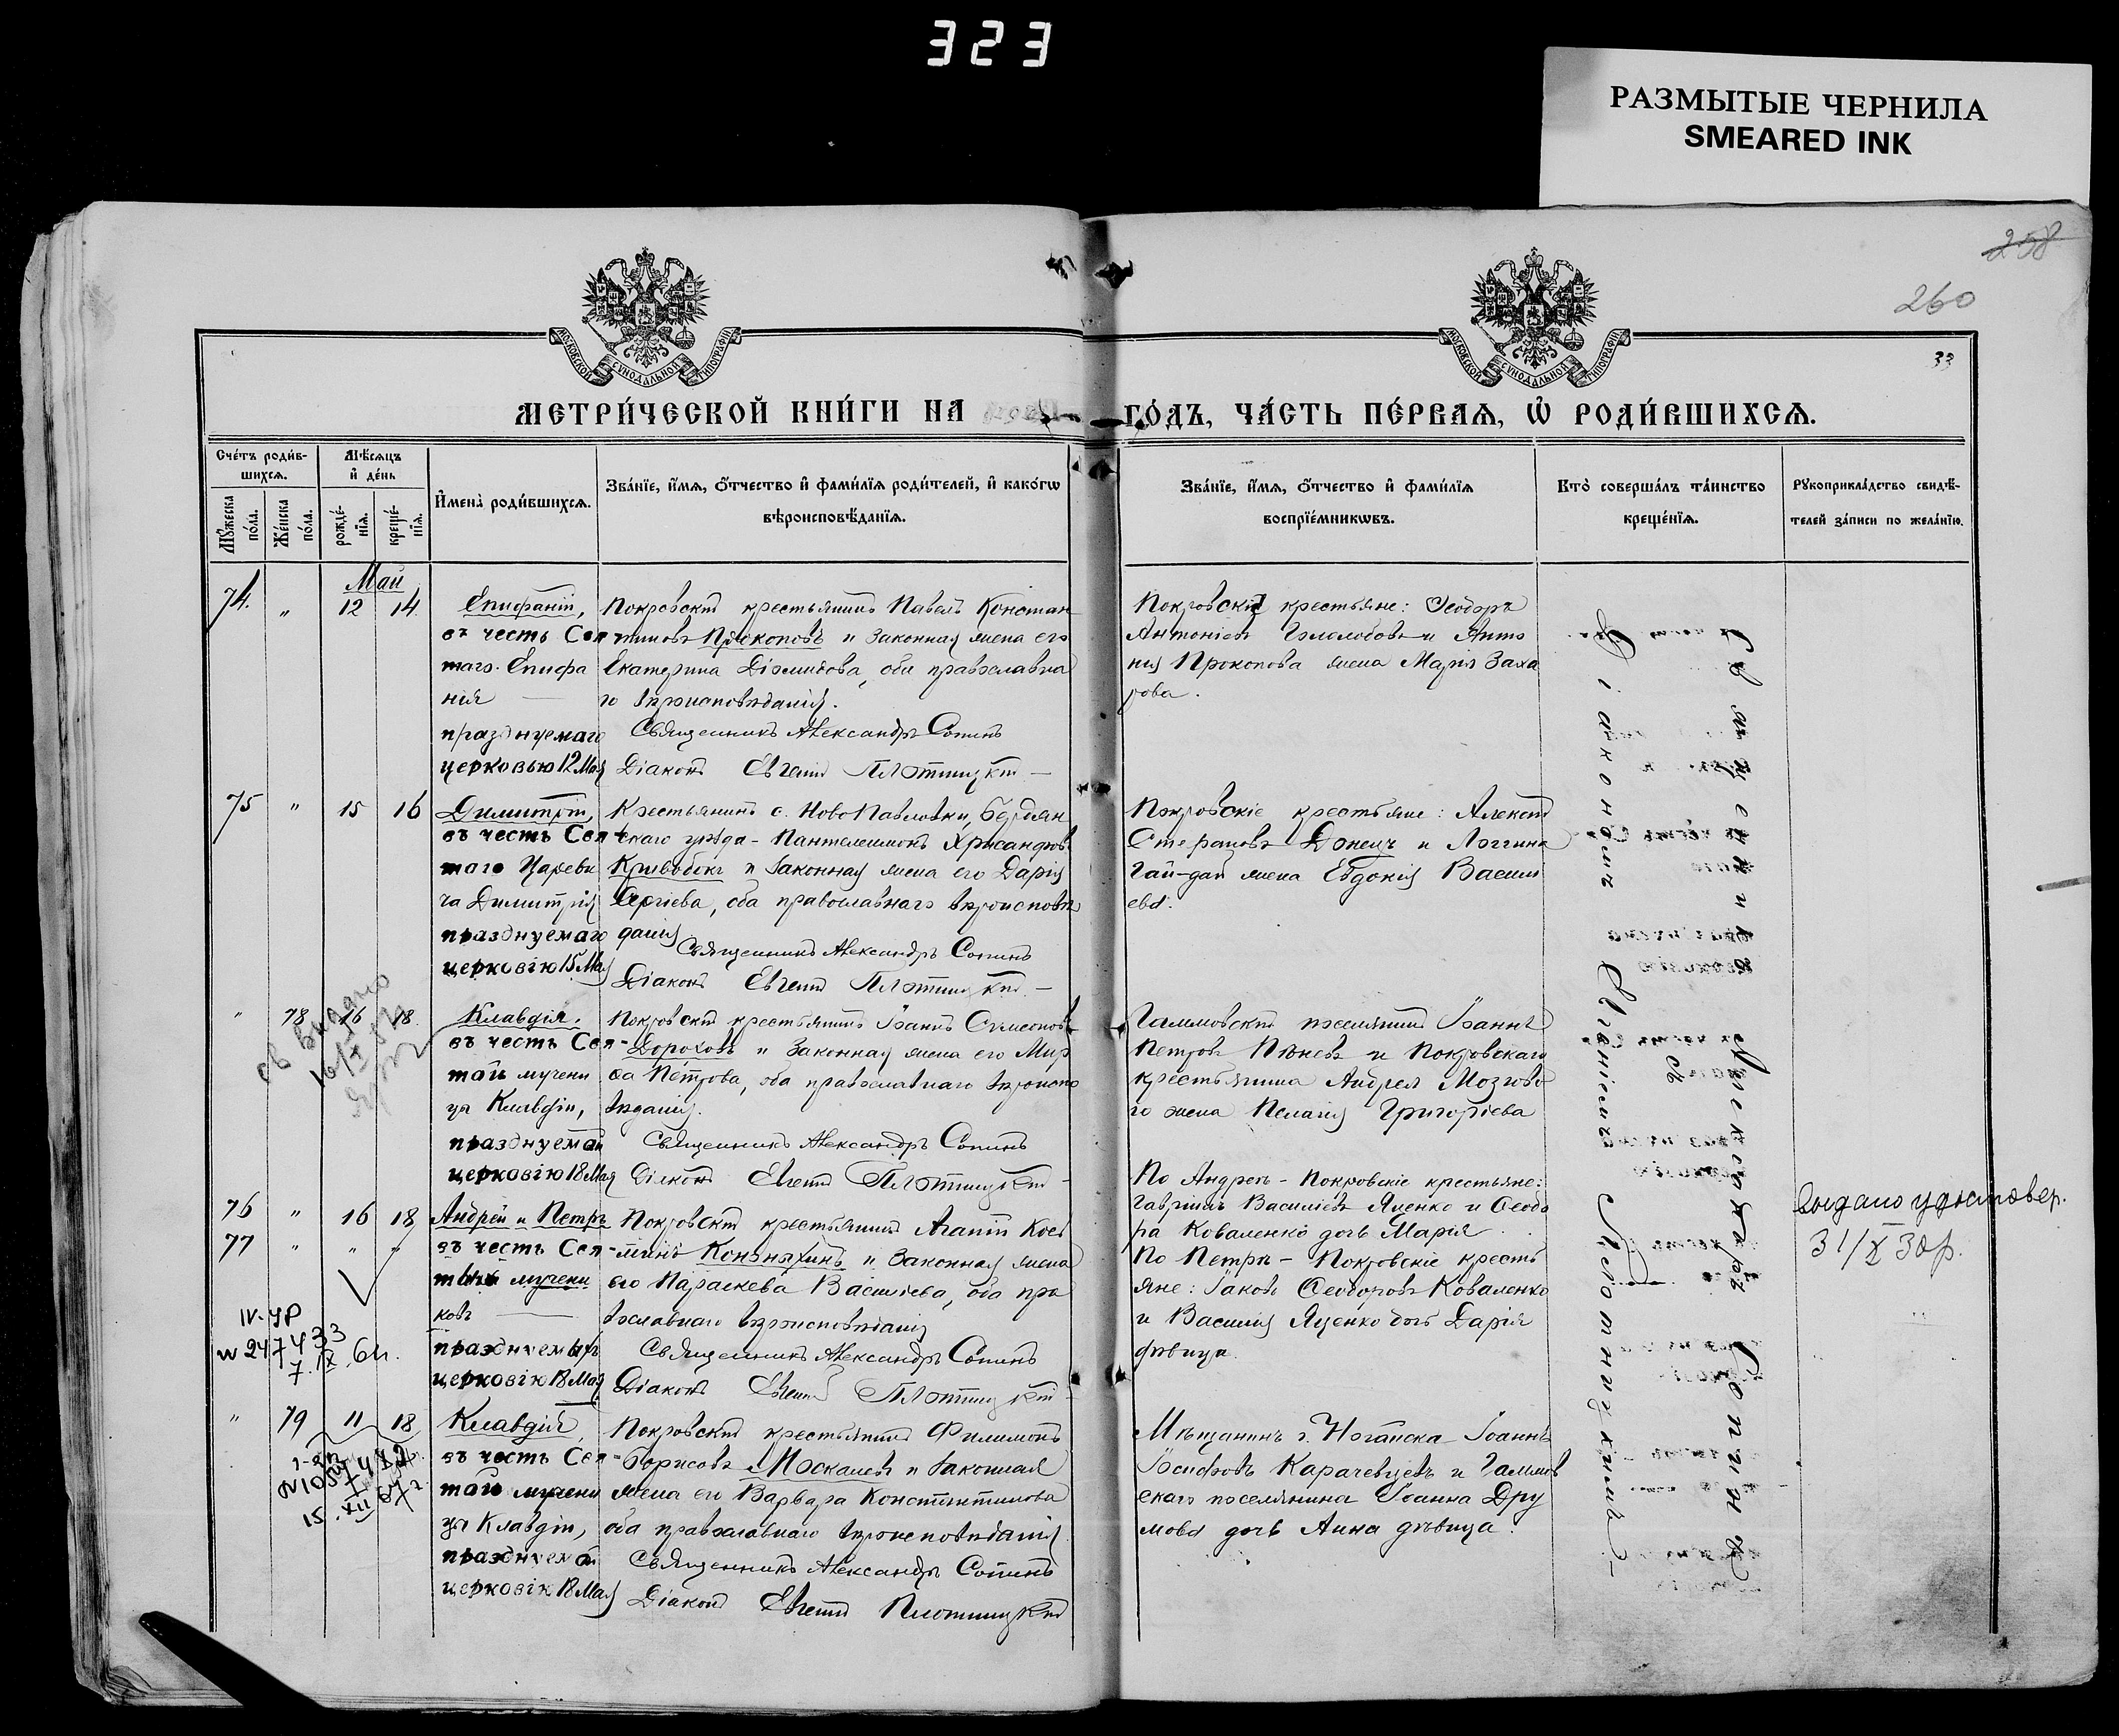 323
РАЗМЫТЫЕ ЧЕРНИЛА
SMEARED INK
258
260
33
МОСКОВСКОЙ СѴНОДАЛЬНОЙ ТИПОГРАФІИ
МОСКОВСКОЙ СѴНОДАЛЬНОЙ ТИПОГРАФІИ
МЕТРИ́ЧЕСКОЙ КНИ́ГИ НА
ГО́ДЪ, ЧА́СТЬ ПЕ́РВАЯ, Ѡ҆ РОДИ́ВШИХСЯ.
Сче́тъ роди́в-
шихся.
Мꙋ́жеска по́ла.
Же́нска по́ла.
Мѣ́сяцъ
и҆ де́нь
рожде́-
нїя.
креще́-
нїя.
И҆мена̀ роди́вшихся.
Зва́нїе, и҆́мя, ѻ҆́тчество и҆ фами́лїя роди́телей, и҆ како́гѡ
вѣроисповѣ́данїя.
Зва́нїе, и҆́мя, ѻ҆́тчество и҆ фами́лїя
воспрїе́мникѡвъ.
Кто̀ соверша́лъ та́инство
креще́нїя.
Рꙋкоприкла́дство свидѣ́-
телей за́писи по жела́нїю.
Май
74. " 12 14.
Епифаній,
въ честь Свя
таго Епифа
нія
празднуемаго
церковью 12 Мая
Покровскій крестьянинъ Павелъ Констан
тиновъ Прокоповъ и законная жена его
Екатерина Діомидова, оба православна
го вѣроисповѣданія.
Священникъ Александръ Сопинъ
Діаконъ Евгеній Плотницкій
Покровскіе крестьяне: Ѳеодоръ
Антоніевъ Гололобовъ и Анто
нія Прокопова жена Марія Заха
рова.
75 " 15 16
Димитрій,
въ честь Свя
таго Цареви
ча Димитрія
празднуемаго
церковію 15 Мая
Крестьянинъ с. НовоПавловки, Бердян
скаго уѣзда - Пантелеимонъ Хрисанфовъ
Кривобокъ и законная жена его Дарія
Сергіева, оба православнаго вѣроисповѣ
данія
Священникъ Александръ Сопинъ
Діаконъ Евгеній Плотницкій
Покровскіе крестьяне: Алексій
Стефановъ Донецъ и Логгина
Гайдай жена Евдокія Василі
ева.
" 78 16 18.
св выдано
Клавдія.
въ честь Свя-
той мучени
цы Клавдіи,
празднуемой
церковію 18 Мая
Покровскій крестьянинъ Іоаннъ Сѵмеоновъ
Дороховъ и законная жена его Мар
ѳа Петрова, оба православнаго вѣроиспо
вѣданія.
Священникъ Александръ Сопинъ
Діаконъ Евгеній Плотницкій
поселянинъ Іоаннъ
Петровъ Пѣневъ и Покровскаго
крестьянина Андрея Мозгово
го жена Пелагія Григоріева
76 " 16 18
77 " " "
Андрей и Петръ
въ честь Свя-
тыхъ мучени
ковъ
празднуемыхъ
церковію 18 Мая
Покровскій крестьянинъ Агапій Кос
минъ Кононыхинъ и законная жена
его Параскева Василіева, оба пра
вославнаго вѣроисповѣданія
Священникъ Александръ Сопинъ
Діаконъ Евгеній Плотницкій
По Андреѣ - Покровскіе крестьяне:
Гавріилъ Василіевъ Яценко и Ѳеодо
ра Коваленко дочь Марія
По Петрѣ - Покровскіе кресть
яне: Іаковъ Ѳеодоровъ Коваленко
и Василія Яценко дочь Дарія
дѣвица.
Выдано удостовер.
31/X 30 р.
IV-УР
N 247433
7.IX.61.
" 79 11 18
15.XII
Клавдія,
въ честь Свя-
той мучени
цы Клавдіи,
празднуемой
церковію 18 Мая
Покровскій крестьянинъ Филимонъ
Борисовъ Москалевъ и законная
жена его Варвара Константинова
оба православнаго вѣроисповѣданія
Священникъ Александръ Сопинъ
Діаконъ Евгеній Плотницкій
Мѣщанинъ г. Ногайска Іоаннъ
Іосифовъ Карачевцевъ и
скаго поселянина Іоанна Дру
мова дочь Анна дѣвица.
Священникъ Александръ Сопинъ
съ
Діакономъ Евгеніемъ Плотницкимъ